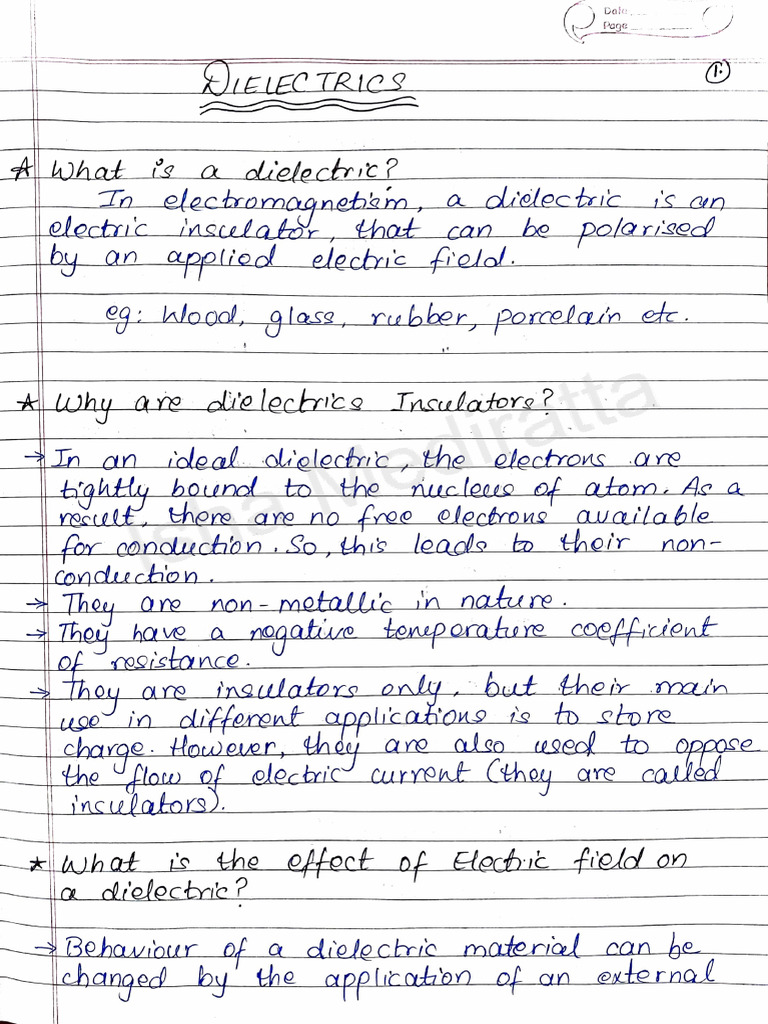 Date
Page
DIELECTRICS
1.
☆ What is a dielectric?
In electromagnetism, a dielectric is an
electric insulator, that can be polarised
by an applied electric field.
eg: Wood, glass, rubber, porcelain etc.
☆ Why are dielectrics Insulators?
→ In an ideal dielectric, the electrons are
tightly bound to the nucleus of atom. As a
result, there are no free electrons available
for conduction. So, this leads to their non-
conduction.
→ They are non-metallic in nature.
→ They have a negative temperature coefficient
of resistance.
→ They are insulators only, but their main
use in different applications is to store
charge. However, they are also used to oppose
the flow of electric current (they are called
insulators).
☆ What is the effect of Electric field on
a dielectric?
→ Behaviour of a dielectric material can be
changed by the application of an external
Isha Mediratta